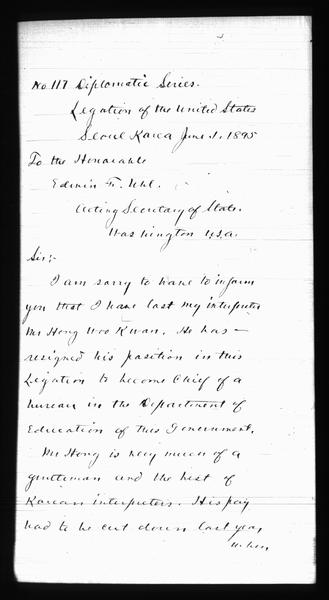 No. 117 Diplomatic Series.
Legation of the United States
Seoul Korea June 1, 1895
To the Honorable
Edwin F. Uhl.
Acting Secretary of State.
Washington U.S.A.
Sir:-
I am sorry to have to inform
you that I have lost my interpreter
Mr Hong Woo Kwan. He has -
resigned his position in this
Legation to become Chief of a
bureau in the Department of
Education of this Government.
Mr Hong is very much of a
gentleman and the best of
Korean interpreters. His pay
had to be cut down last year,
when